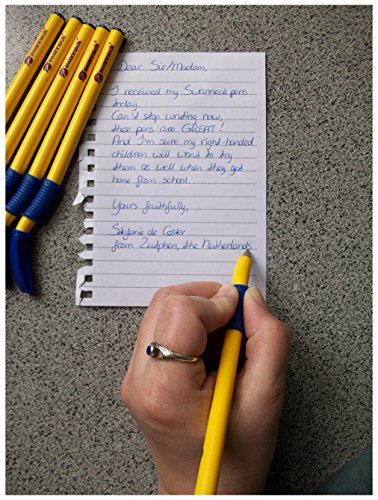 Dear Sir/Madam,
I received my Swanneck pens
today.
Can'd stop wriding now,
thee pens are GREAT!
And I'm sure my right-handed
children will wand to try
them as well when they get
home from school.
Yours faithfully,
Stefanie de Coster
from Zutphen, the Netherlands.